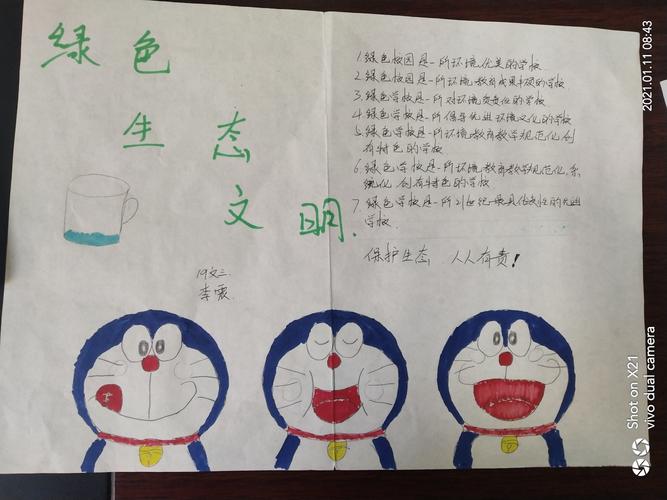 绿色
生态
文明.
19文三
李震
1.绿色校园是一所环境优美的学校
2.绿色校园是一所环境教育成果丰硕的学校
3.绿色学校是一所对环境负责任的学校
4.绿色学校是一所倡导先进环境文化的学校
5.绿色学校是一所环境教育教学规范化,创
有特色的学校
6.绿色学校是一所环境教育教学规范化,系
统化,创有特色的学校
7.绿色学校是一所21世纪最具代表性的先进
学校.
保护生态 人人有责!
2021.01.11 08:43
Shot on X21
vivo dual camera